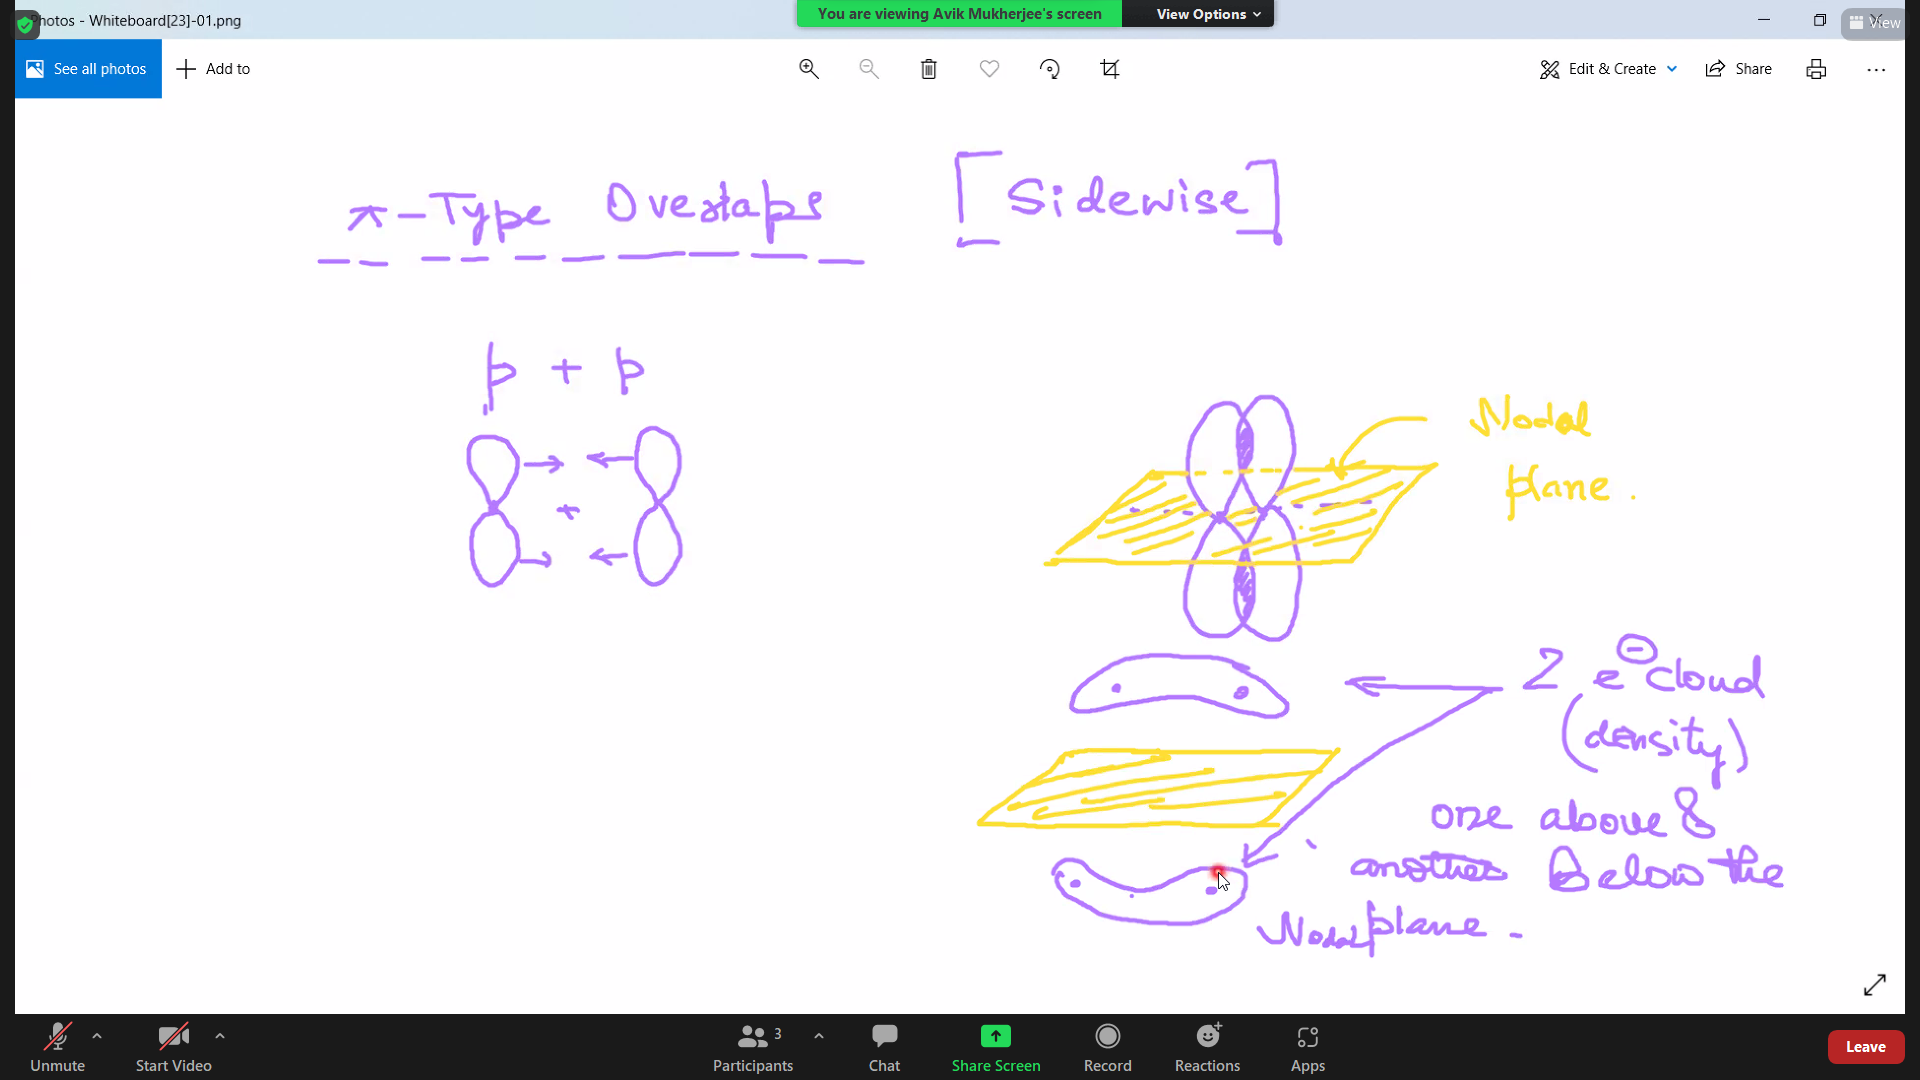 Photos - Whiteboard[23]-01.png
You are viewing Avik Mukherjee's screen
View Options
View
See all photos
Add to
Edit & Create
Share
π-Type Overlaps [Sidewise]
p + p
Nodal
plane.
2 e⊖ cloud
(density)
one above &
another Below the
Nodal plane.
Unmute
Start Video
Participants
3
Chat
Share Screen
Record
Reactions
Apps
Leave